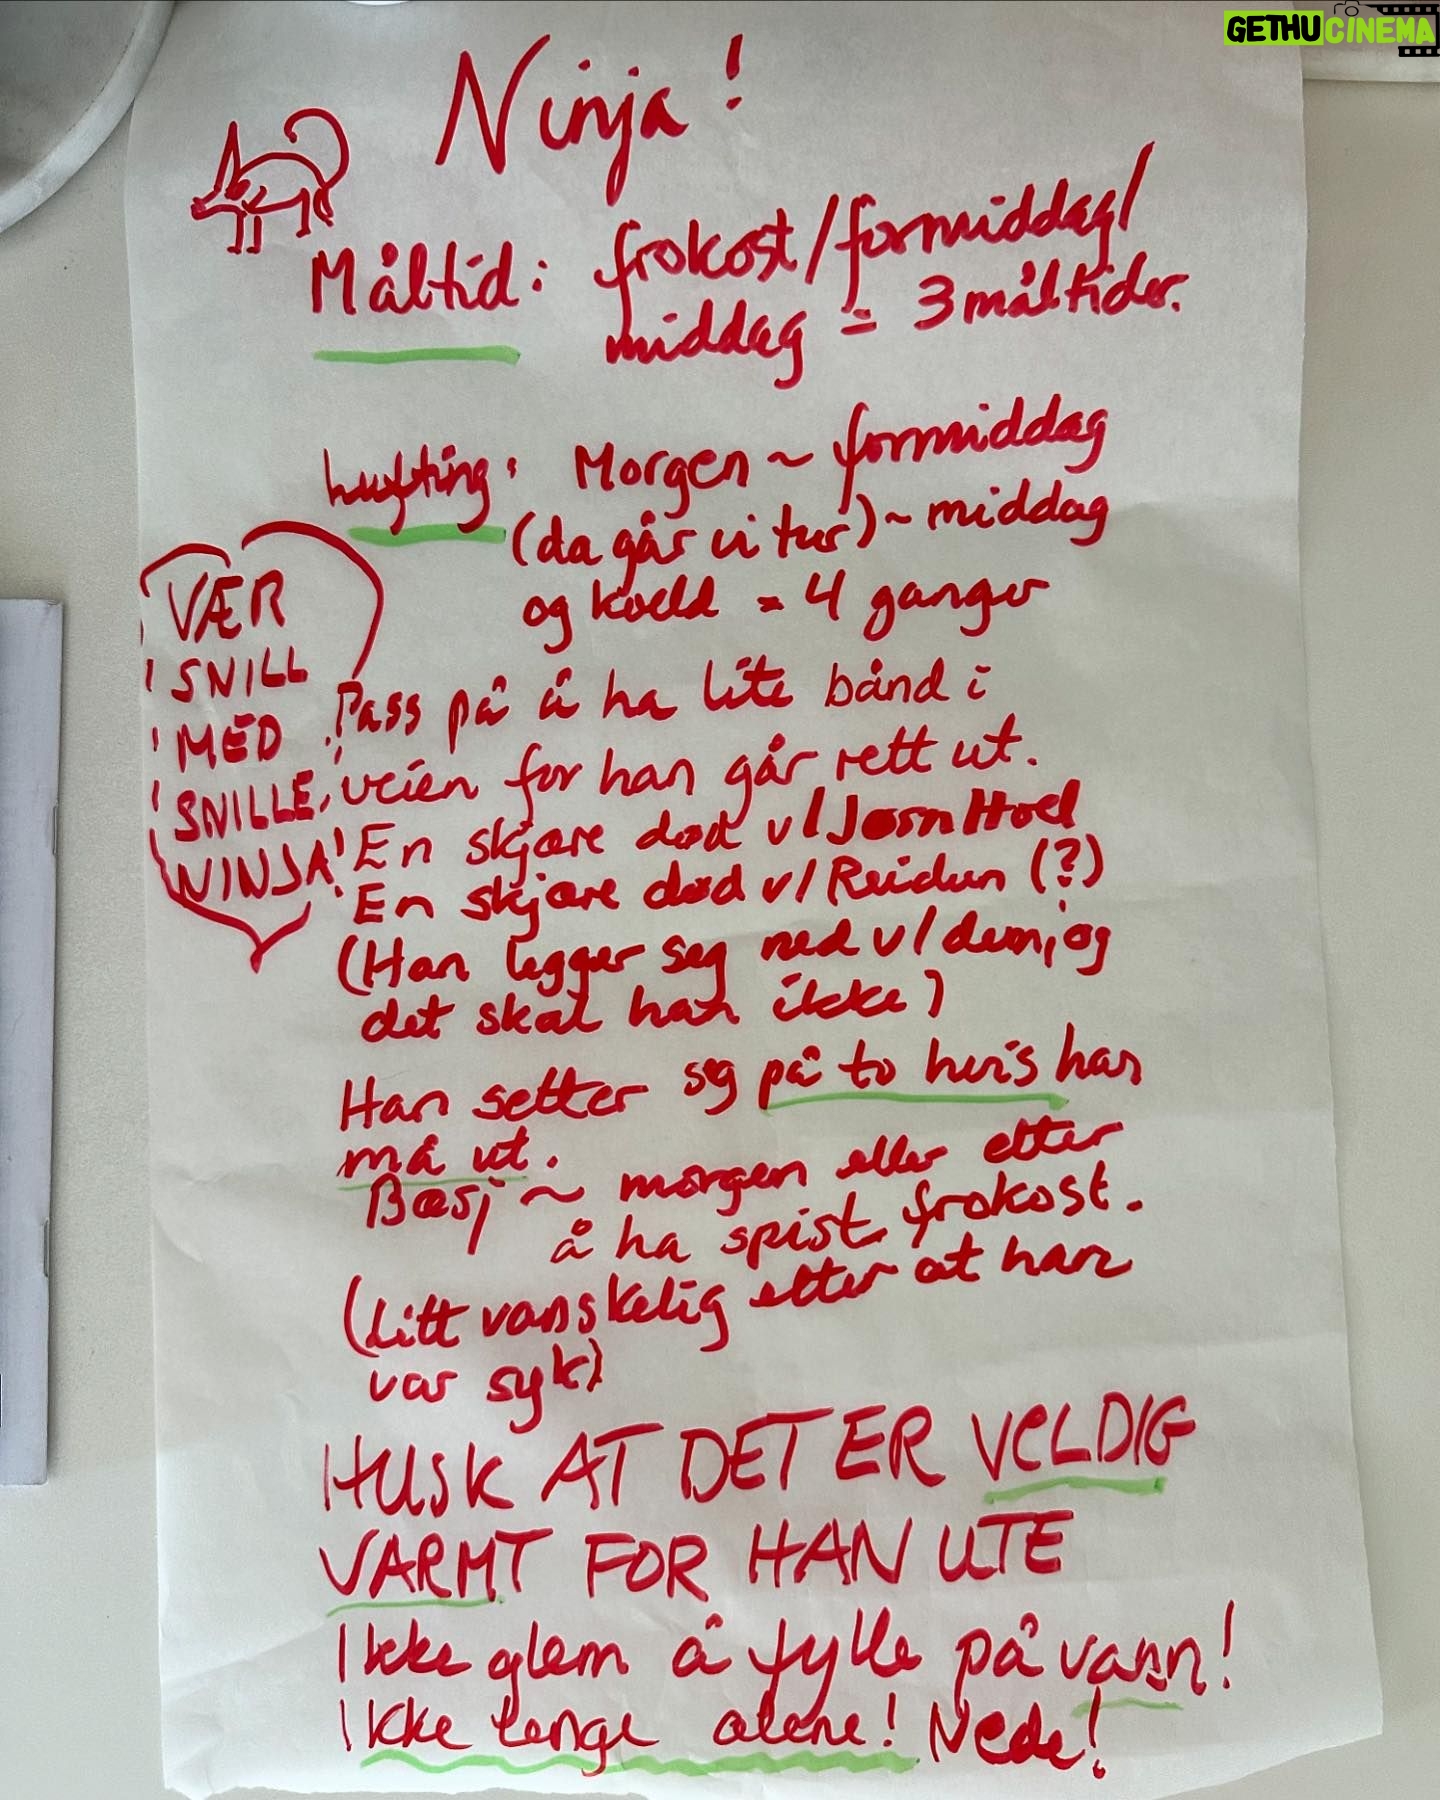 GETHUCINEMA
Ninja!
Måltid: frokost/formiddag/
middag = 3 måltider.
Lufting: Morgen ~ formiddag
(da går vi tur) ~ middag
og kveld = 4 ganger
VÆR
SNILL
MED
SNILLE,
NINJA!
Pass på å ha lite bånd i
veien for han går rett ut.
En skjære død v/Jørn Hoel
En skjære død v/Reidun (?)
(Han legger seg ned v/dem, og
det skal han ikke)
Han setter seg på to hvis han
må ut.
Bæsj ~ morgen eller etter
å ha spist frokost.
(Litt vanskelig etter at han
var syk)
HUSK AT DET ER VELDIG
VARMT FOR HAN UTE
Ikke glem å fylle på vann!
Ikke lenge alene! Nede!